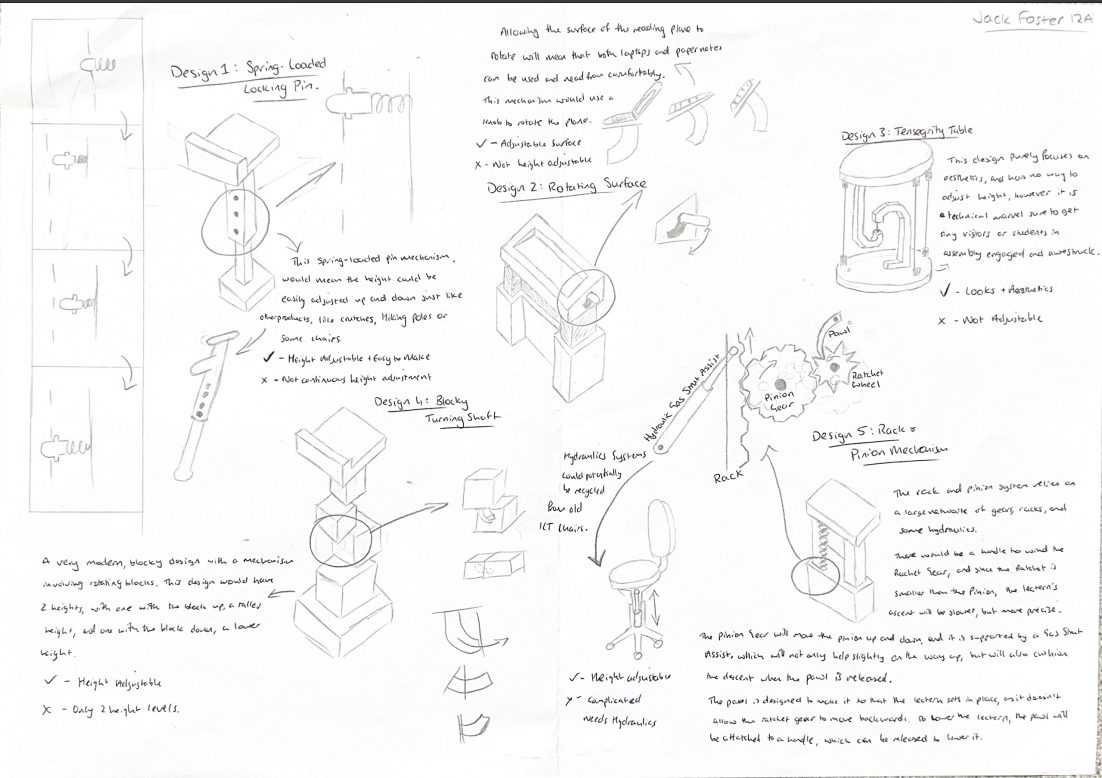 Jack Foster 12A
Design 1: Spring-Loaded
Locking Pin.
This spring-loaded pin mechanism,
would mean the height could be
easily adjusted up and down just like
other products, like crutches, Hiking Poles or
some chairs.
✓ - Height Adjustable + Easy to Make
x - Not continuous height adjustment
Allowing the surface of the reading plane to
rotate will mean that both laptops and paper notes
can be used and read from comfortably.
This mechanism would use a
knob to rotate the plane.
✓ - Adjustable surface
x - Not height adjustable
Design 2: Rotating Surface
Design 3: Tensegrity Table
This design purely focuses on
aesthetics, and has no way to
adjust height, however it is
a technical marvel sure to get
any visitors or students in
assembly engaged and awestruck.
✓ - Looks + Aesthetics
x - Not Adjustable
Design 4: Blocky
Turning Shaft
A very modern, blocky design with a mechanism
involving rotating blocks. This design would have
2 heights, with one with the block up, a taller
height, and one with the block down, a lower
height.
✓ - Height Adjustable
x - Only 2 height levels.
Hydraulic Gas Strut Assist
Rack
Pinion
Gear
Pawl
Ratchet
Wheel
Hydraulics Systems
could potentially
be recycled
from old
ICT chairs.
✓ - Height adjustable
x - Complicated
needs Hydraulics
Design 5: Rack &
Pinion Mechanism
The rack and pinion system relies on
a large network of gears, racks, and
some hydraulics.
There would be a handle to wind the
Rachet Gear, and since the Ratchet is
smaller than the Pinion, the lectern's
ascent will be slower, but more precise.
The Pinion Gear will move the pinion up and down, and it is supported by a Gas Strut
Assist, which will not only help slightly on the way up, but will also cushion
the descent when the pawl is released.
The pawl is designed to make it so that the lectern sets in place, as it doesn't
allow the ratchet gear to move backwards. To lower the lectern, the pawl will
be attatched to a handle, which can be released to lower it.